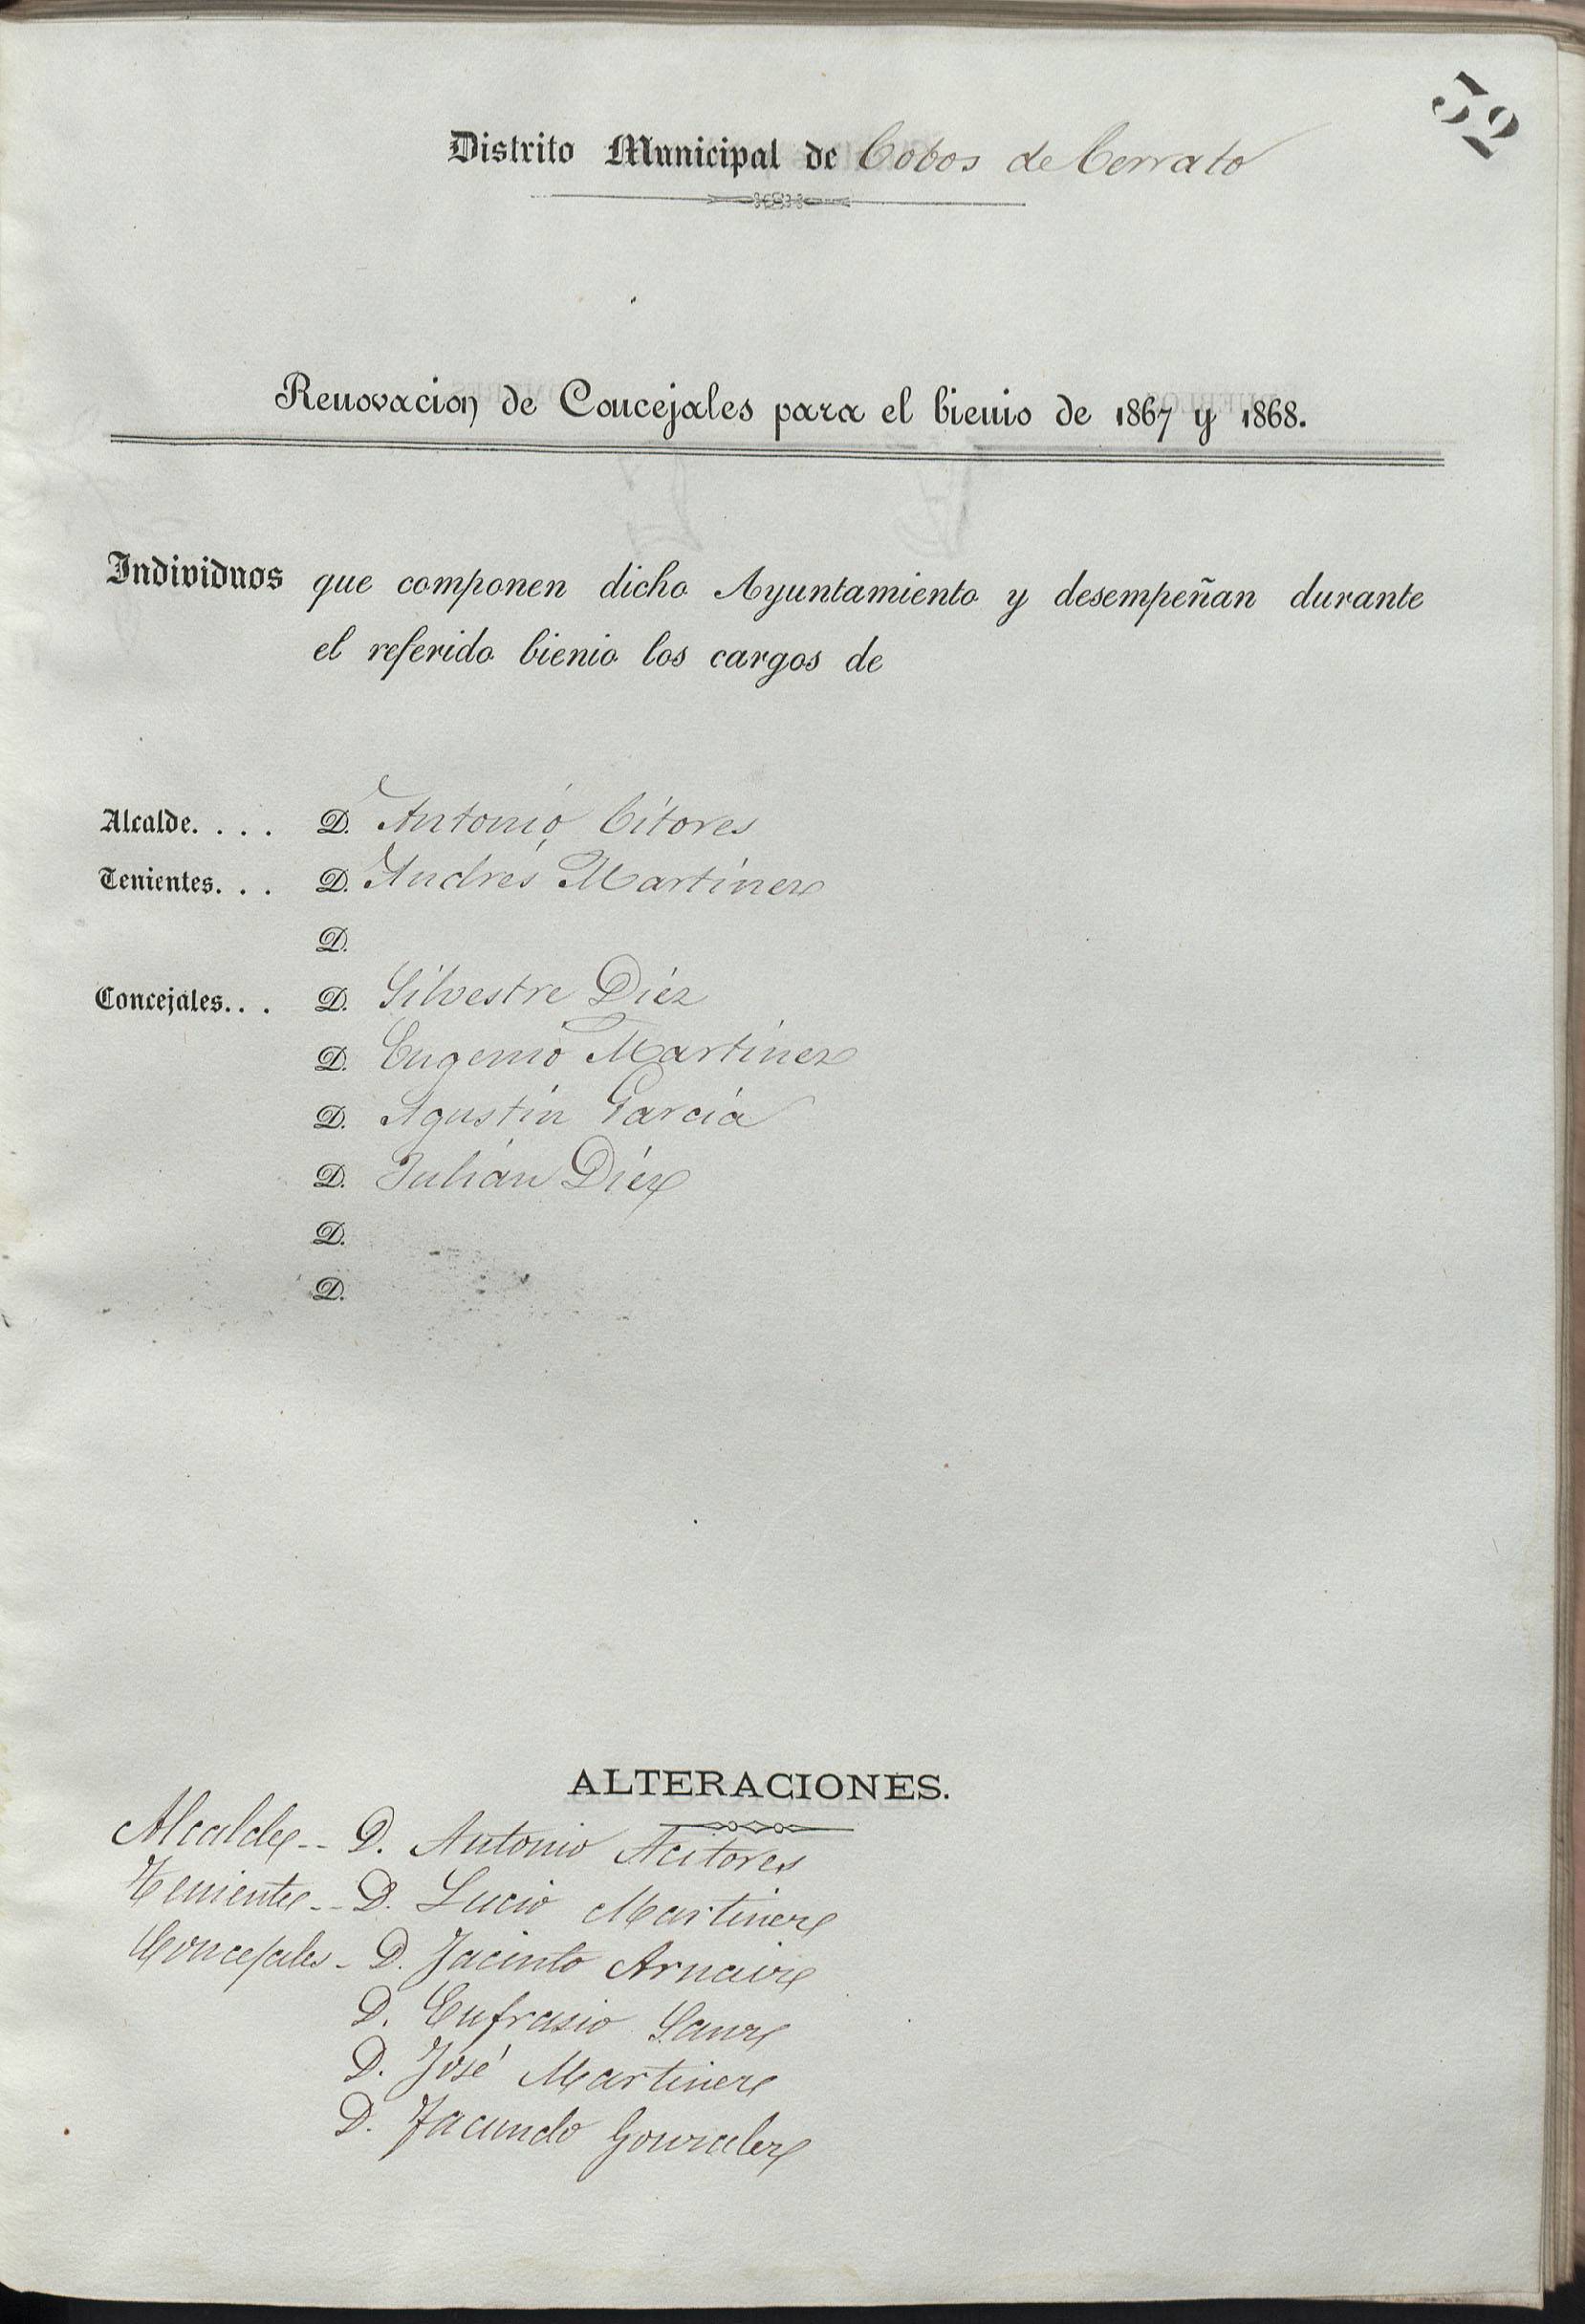 52
Distrito Municipal de Cobos de Cerrato
Renovacion de Concejales para el bienio de 1867 y 1868.
Individuos que componen dicho Ayuntamiento y desempeñan durante
el referido bienio los cargos de
Alcalde. . . . D. Antonio Citores
Tenientes. . . D. Andrés Martinez
D.
Concejales. . . D. Silvestre Diez
D. Eugenio Martinez
D. Agustin Garcia
D. Julián Diez
D.
D.
ALTERACIONES.
Alcalde -- D. Antonio Acitores
Teniente -- D. Lucio Martinez
Concejales - D. Jacinto Arnaiz
D. Eufrasio Sanz
D. José Martinez
D. Facundo Gonzalez